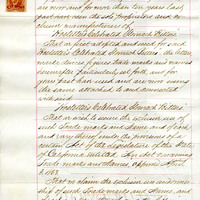 are now and for more than ten years last
past have been the sole proprietors and ex-
clusive manufacturers of
Hostetter's Celebrated Stomach Bitters.
That we first adopted and used for said
Hostetter's Celebrated Stomach Bitters the letters
marks devices figures trade marks and names
hereinafter particularly set forth, and for
years past have used and are now users
the same attached to and connected
with said
Hostetter's Celebrated Stomach Bitters
That we wish to secure the exclusive use of
such Trade marks and Name and of each
and every thereof under the provisions of a
certain Act of the Legislature of the State of
California entitled An Act concerning
Trade marks and Names approved April
1863
That we claim the exclusive ownership
of such Trade marks and Name, and